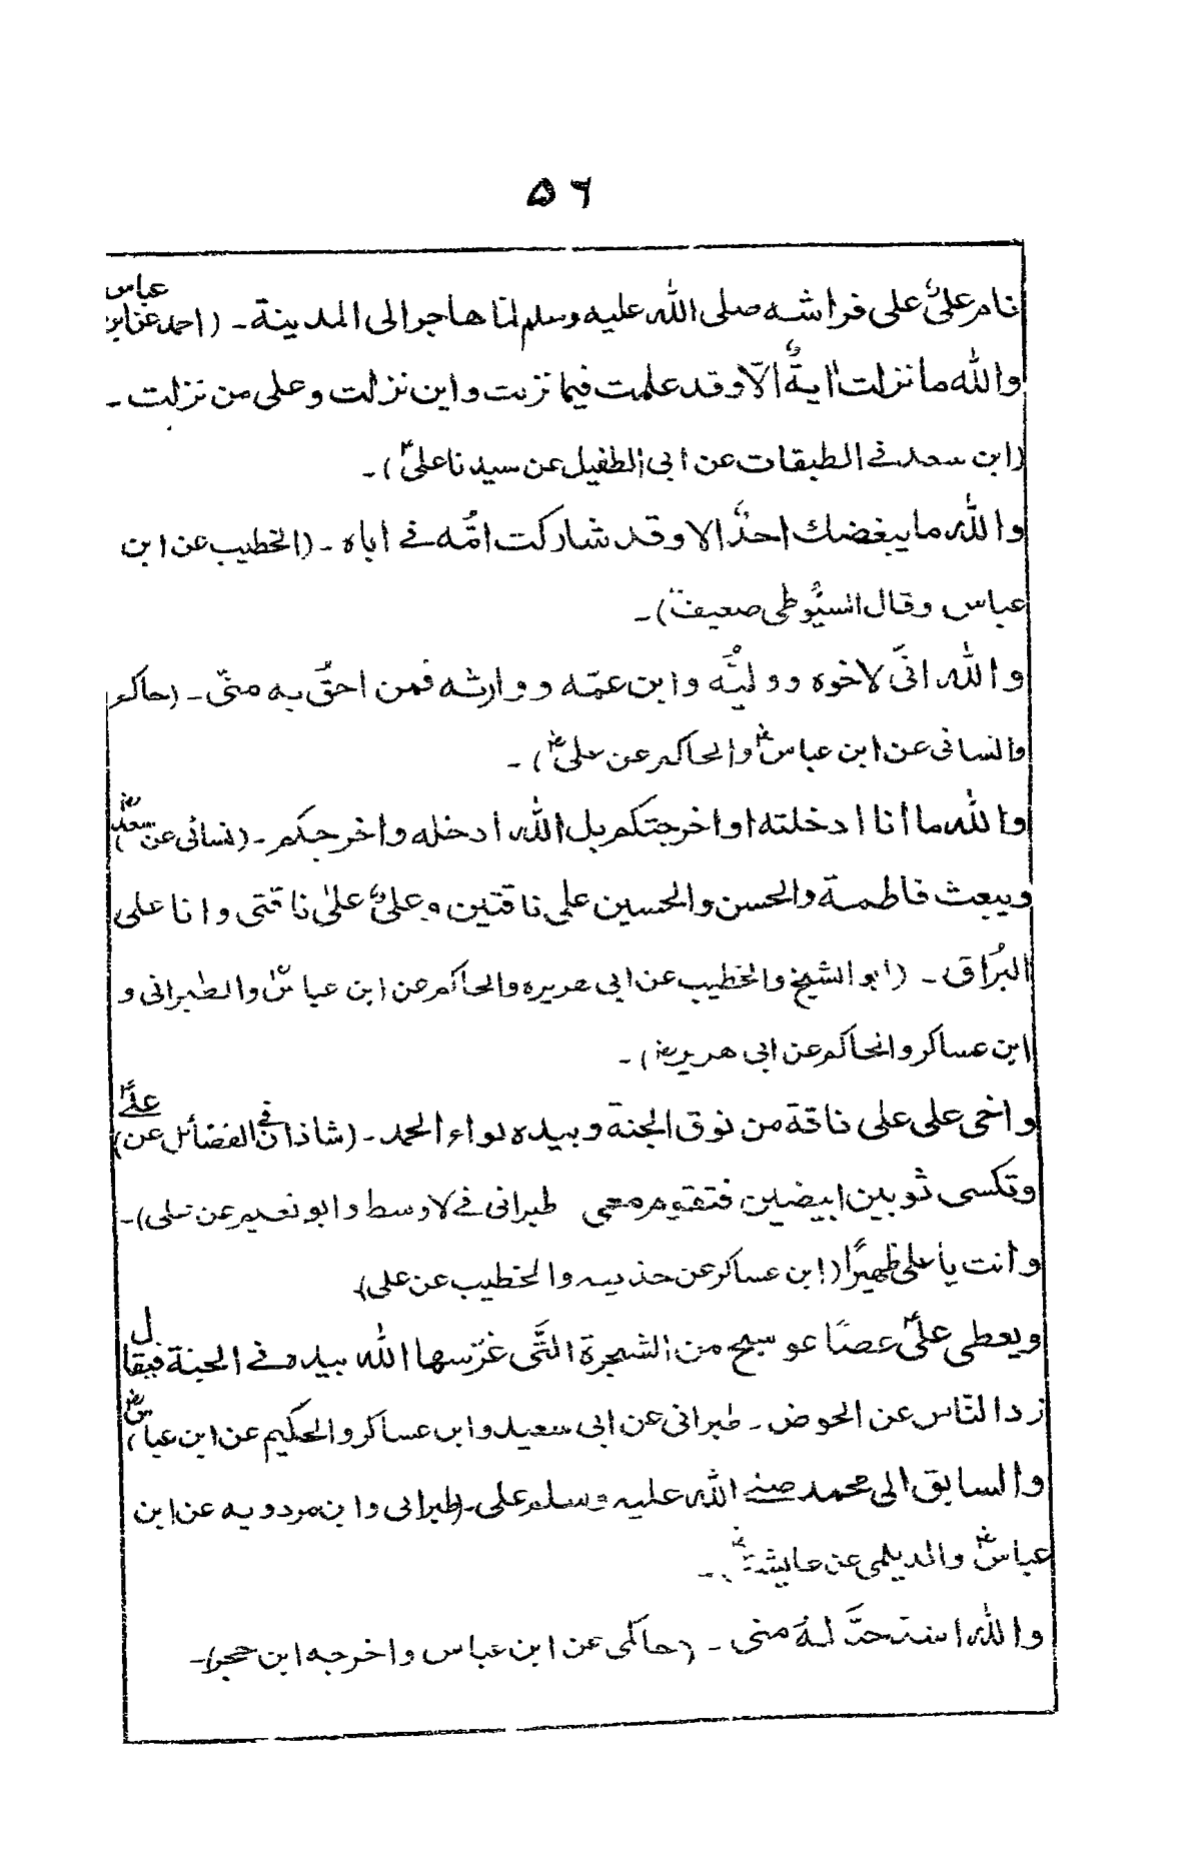 ۵۶
نام علیؓ علی فراشه صلی الله علیه وسلم لمّا هاجر الی المدینة ـ (احمد عن ابن عباس
والله ما نزلت اٰیةٌ الّا وقد علمت فیما نزلت واین نزلت وعلی من نزلت ـ
(ابن سعد فے الطبقات عن ابی الطفیل عن سیدنا علیؓ) ـ
والله ما یبغضك احدٌ الا وقد شارکت امُّه فے اباه ـ (الخطیب عن ابن
عباس وقال السیُوطی ضعیف) ـ
والله انّی لاخوه وولیُّه وابن عمّه ووارثه فمن احقُّ به منّی ـ (حاکم
والنسائی عن ابن عباسؓ والحاکم عن علیؓ) ـ
والله ما انا ادخلته او اخرجتکم بل الله ادخله واخرجکم ـ (نسائی عن سعدؓ)
ویبعث فاطمة والحسن والحسین علی ناقتین وعلیؓ علیٰ ناقتی وانا علی
البُراق ـ (ابو الشیخ والخطیب عن ابی هریره والحاکم عن ابن عباسؓ والطبرانی و
ابن عساکر والحاکم عن ابی هریرهؓ) ـ
واخی علی علی ناقة من نوق الجنة وبیده لواء الحمد ـ (شاذان فی الفضائل عن علیؓ)
وتکسی ثوبین ابیضین فتقوم معی طبرانی فے لاوسط وابو نعیم عن علی) ـ
وانت یا علی ظهیرًا (ابن عساکر عن حذیفه والخطیب عن علی)
ویعطی علیؓ عصًا عوسج من الشجرة الّتی غرّسها الله بیده فے الجنة فیقال
زد النّاس عن الحوض ـ طبرانی عن ابی سعید وابن عساکر والحکیم عن ابن عباسؓ)
والسابق الی محمد صلے الله علیه وسلم علی ـ (طبرانی وابن مردویه عن ابن
عباسؓ والدیلمی عن عایشةؓ) ـ
والله حدَّ لهٗ منی ـ (حاکمی عن ابن عباس واخرجه ابن حجر) ـ